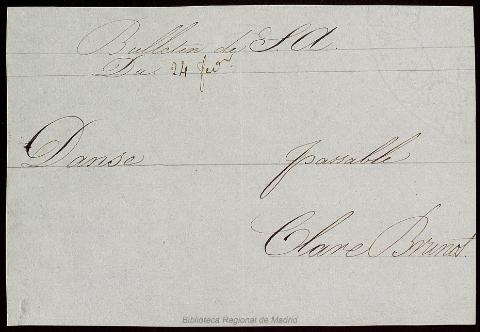 Bulletin de S.A.
Du 24 Jer
Danse passable
Clare Brunot.
Biblioteca Regional de Madrid